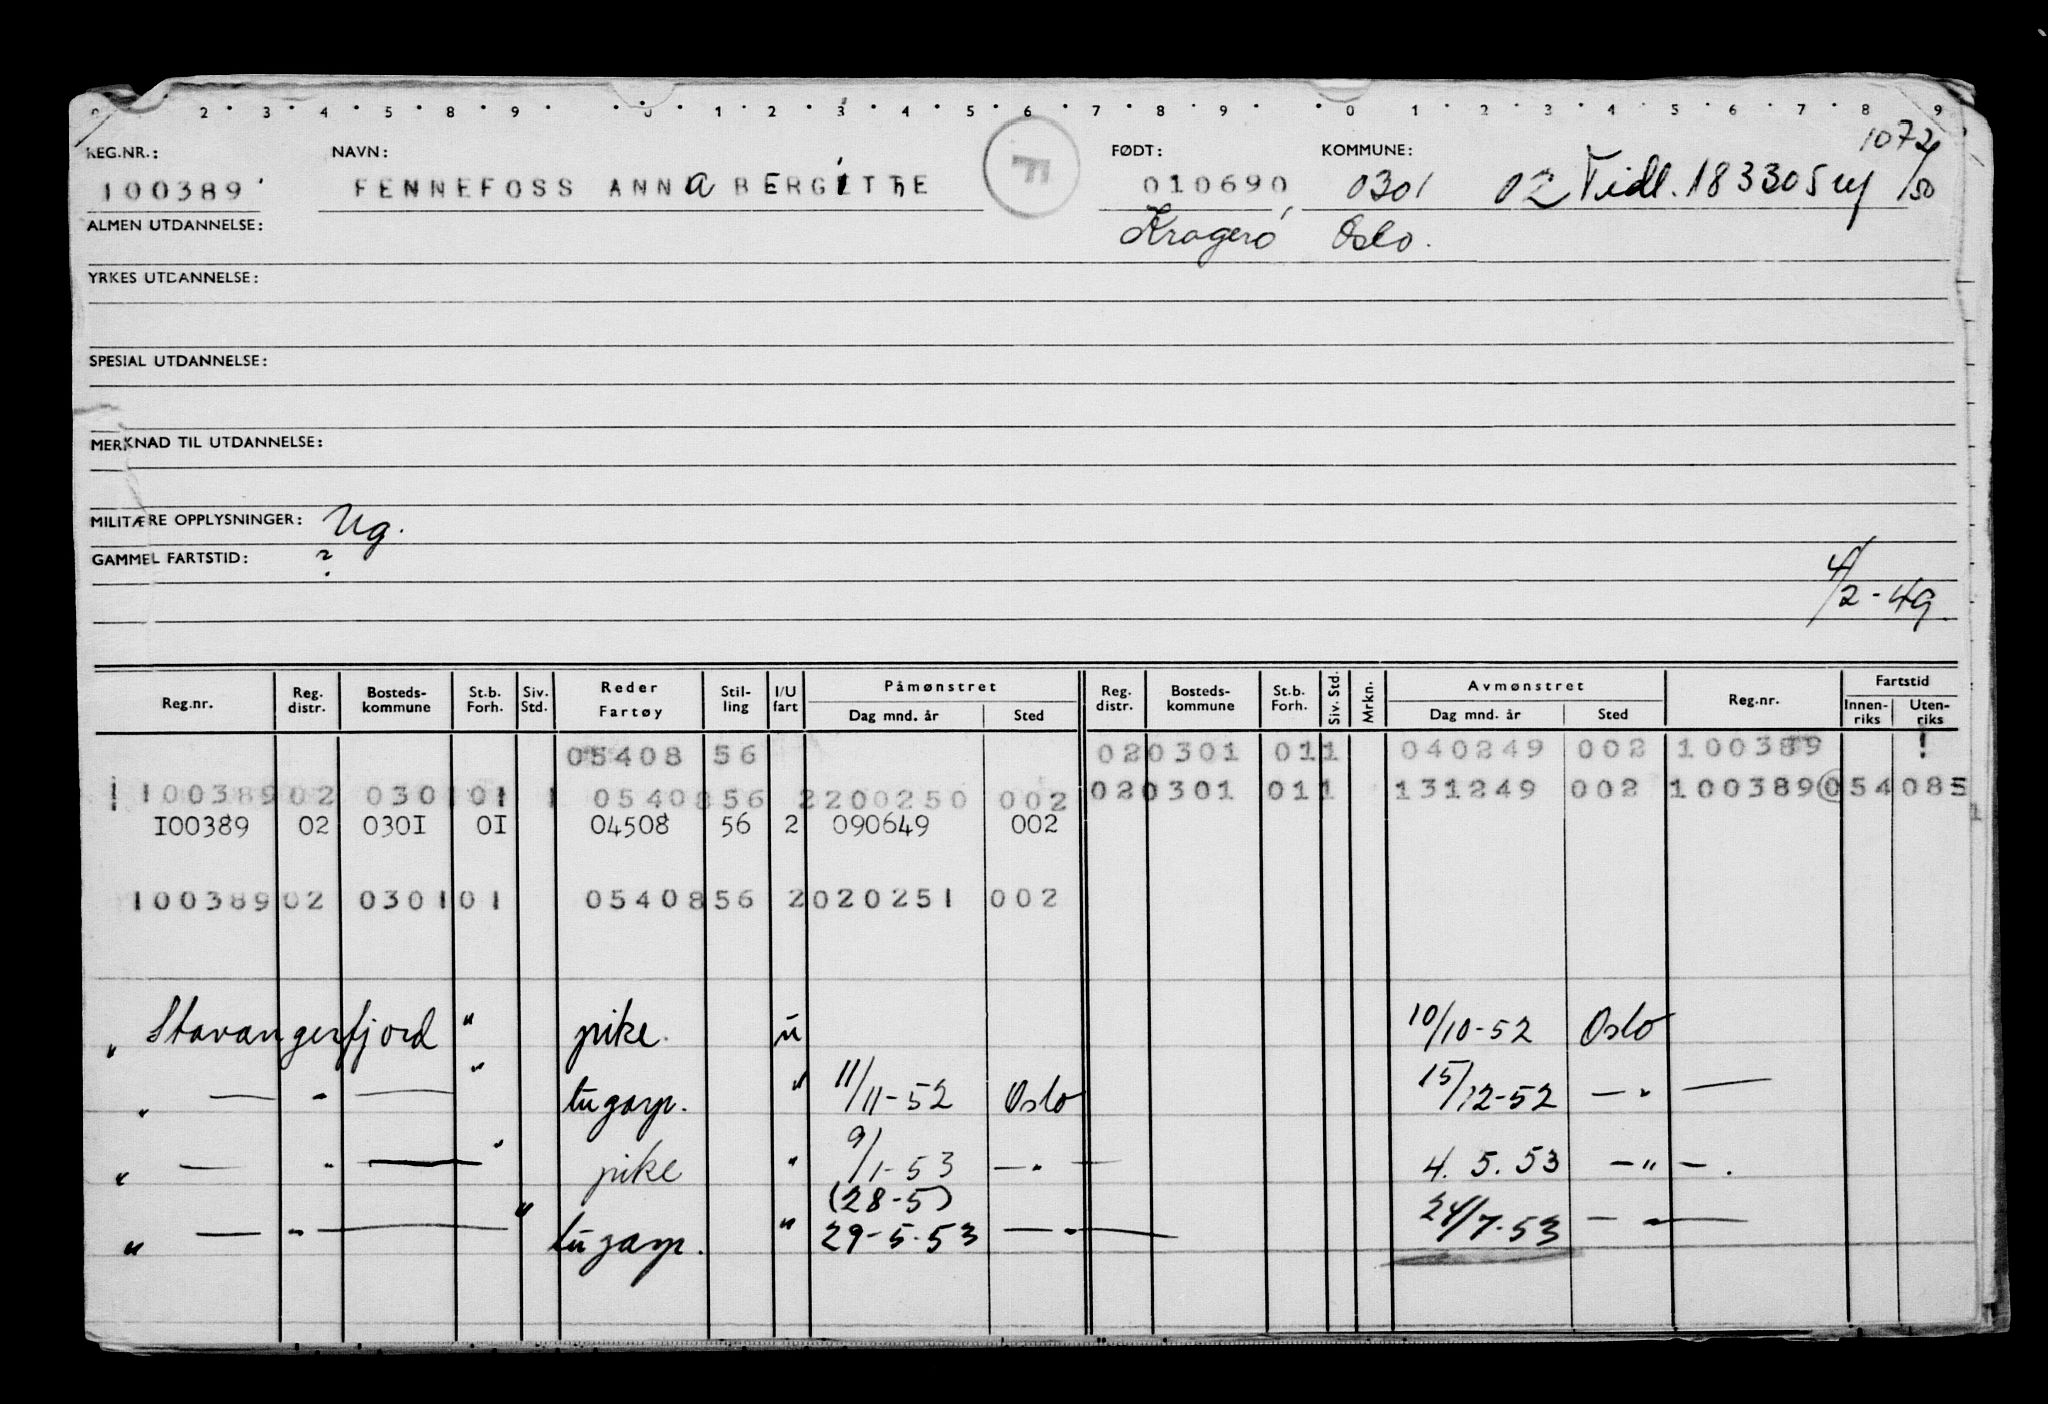 0 2 3 4 5 8 9 0 1 2 3 4 5 6 7 8 9 0 1 2 3 4 5 6 7 8 9
1072
REG.NR.: NAVN: F FØDT: KOMMUNE:
100389 FENNEFOSS ANNA BERGITHE 010690 0301 02 Tidl. 183305 /50
ALMEN UTDANNELSE: Kragerø Oslo.
YRKES UTDANNELSE:
SPESIAL UTDANNELSE:
MERKNAD TIL UTDANNELSE:
MILITÆRE OPPLYSNINGER: Ug.
GAMMEL FARTSTID: ?
4/2-49
Reg.nr. Reg. distr. Bosteds- kommune St.b. Forh. Siv. Std. Reder Fartøy Stil- ling I/U fart Påmønstret Dag mnd. år Sted Reg. distr. Bosteds- kommune St.b. Forh. Siv. Std. Mrkn. Avmønstret Dag mnd. år Sted Reg.nr. Fartstid Innen- riks Uten- riks
05408 56 02 0301 01 1 040249 002 100389 !
! 100389 02 0301 01 1 05408 56 2 200250 002 02 0301 01 1 131249 002 100389 054 085
I00389 02 030I 0I 04508 56 2 090649 002
100389 02 0301 01 05408 56 2 020251 002
" Stavangerfjord " pike u 10/10-52 Oslo
" — " — " tugarp. " 11/11-52 Oslo 15/12-52 — " —
" — " — " pike " 9/1-53 — " — 4. 5. 53 — " — .
(28-5)
" — " — " tugarp. " 29-5-53 — " — 24/7-53 — " —